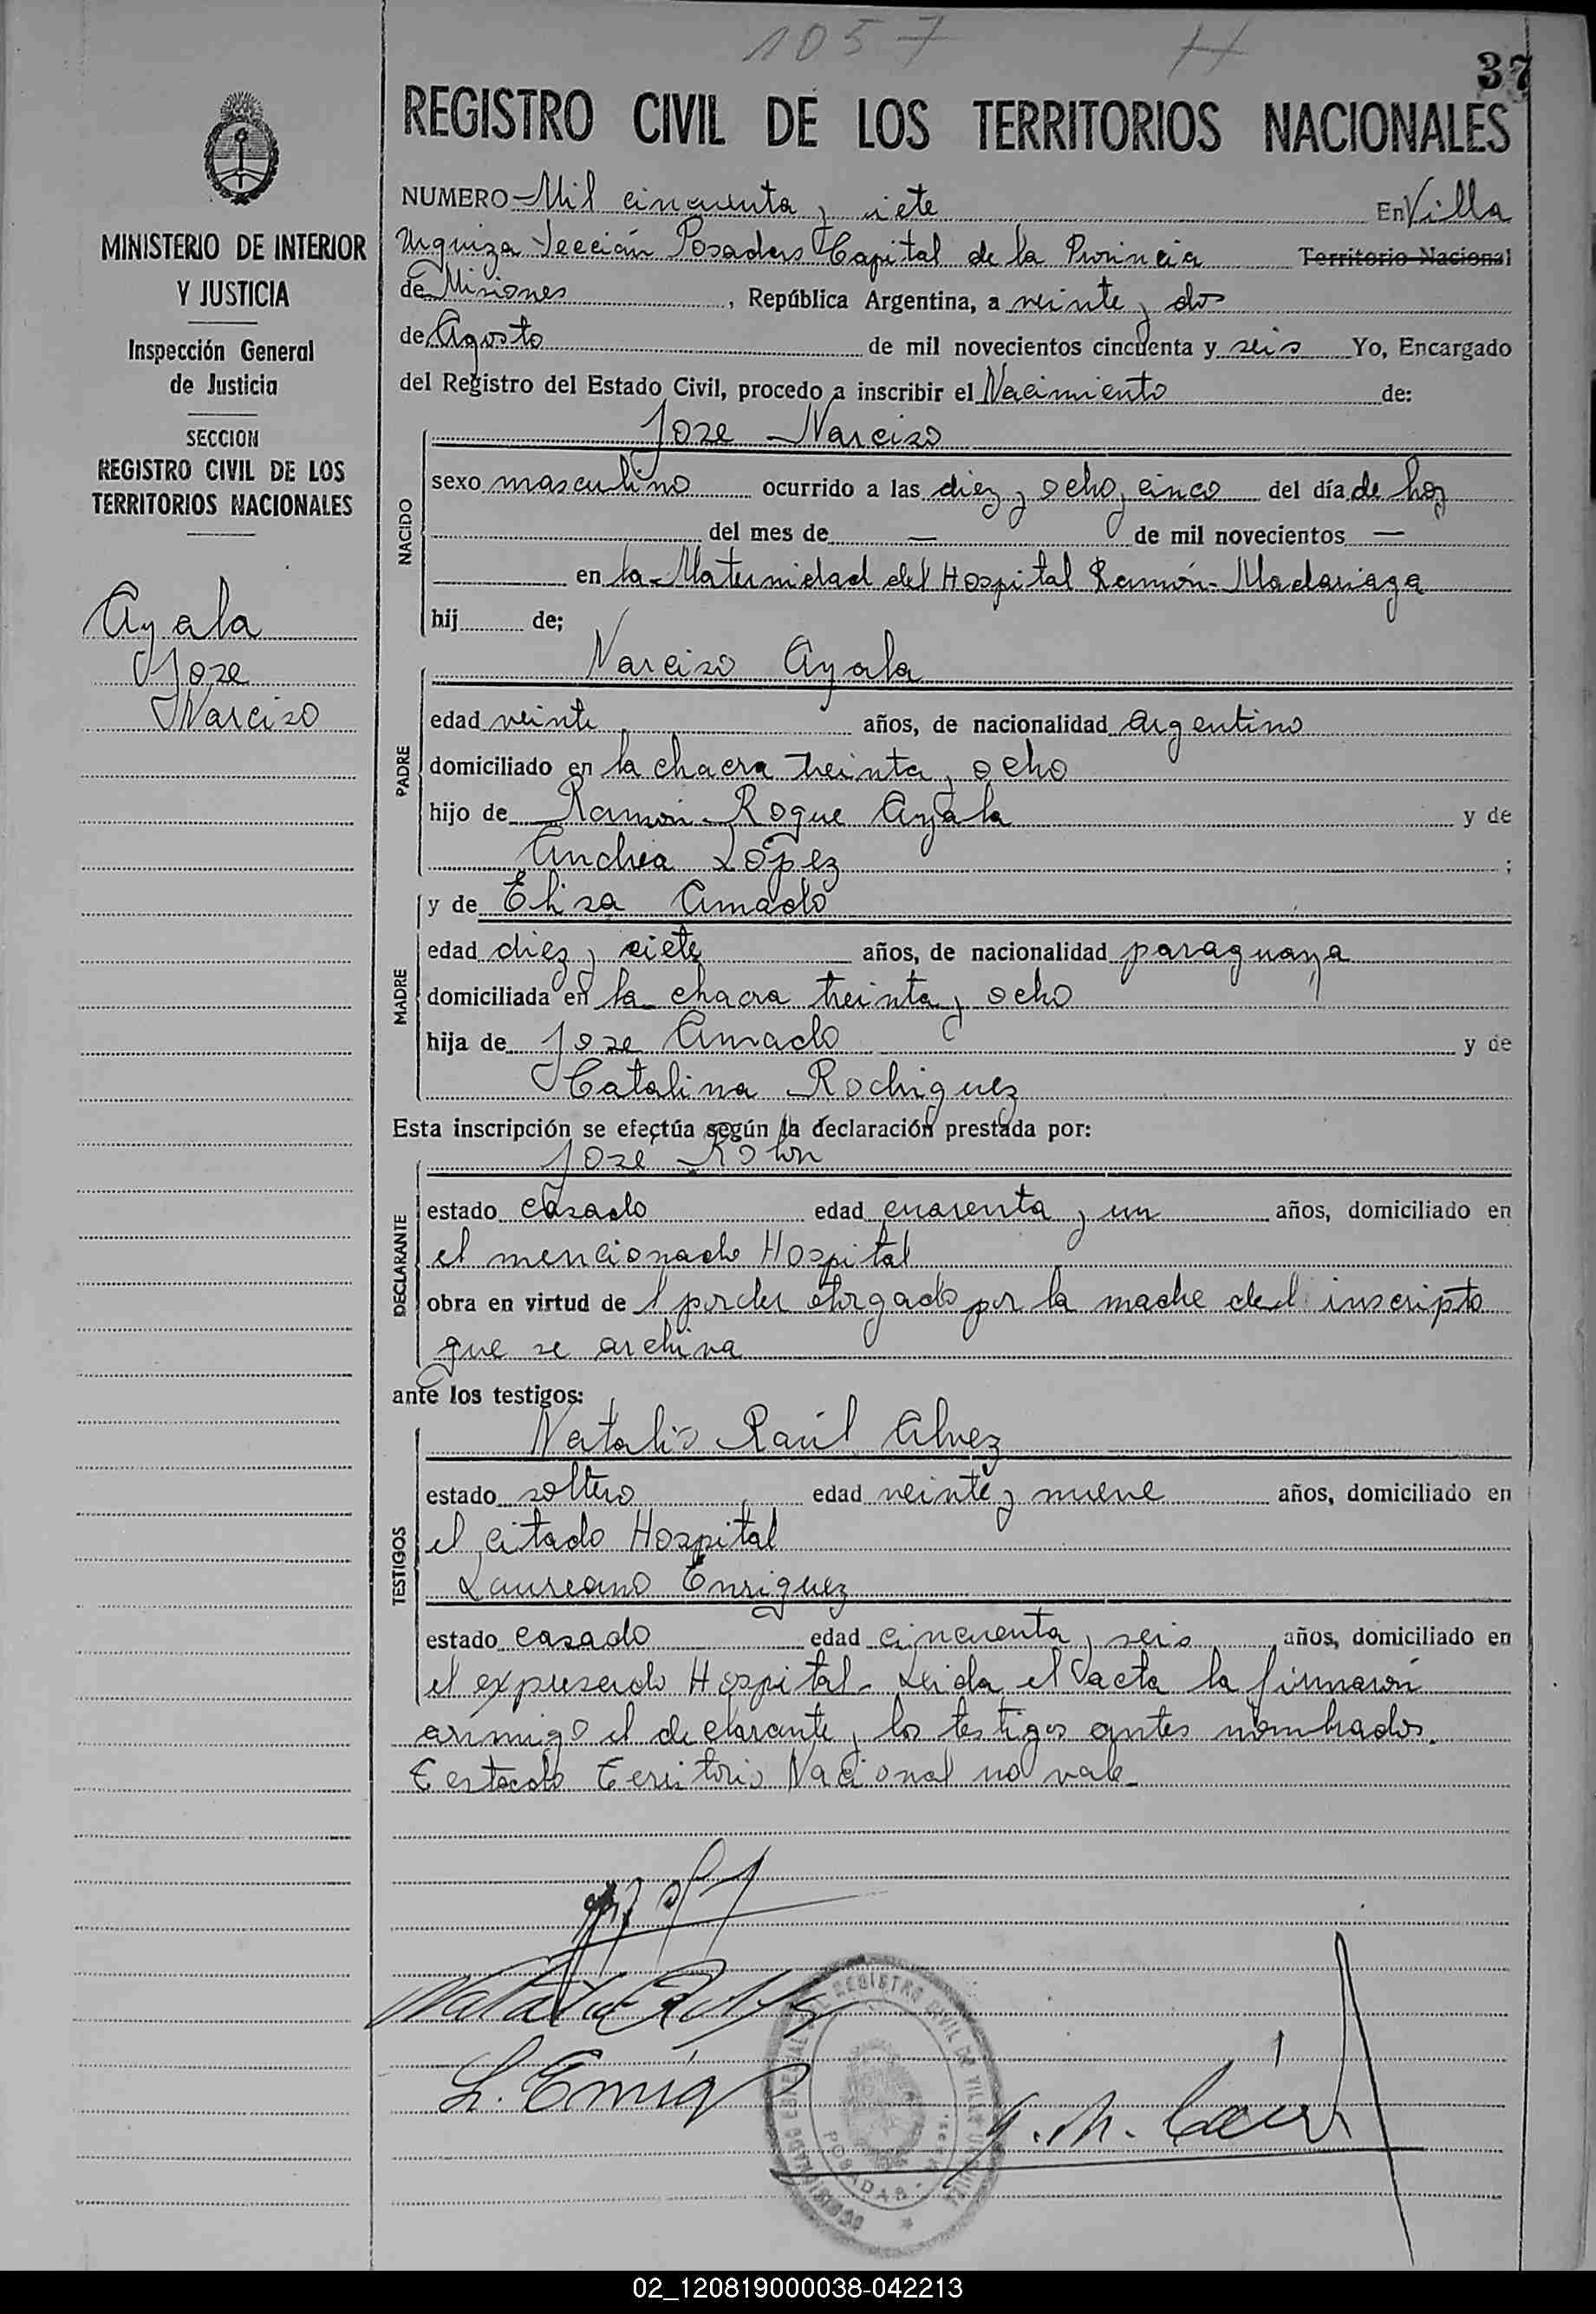 1057 H
37
REGISTRO CIVIL DE LOS TERRITORIOS NACIONALES
MINISTERIO DE INTERIOR
Y JUSTICIA
Inspección General
de Justicia
SECCION
REGISTRO CIVIL DE LOS
TERRITORIOS NACIONALES
Ayala
Jose
Narciso
NUMERO Mil cincuenta y siete En Villa
Urquiza Sección Posadas Capital de la Provincia Territorio Nacional
de Misiones, República Argentina, a veinte y dos
de Agosto de mil novecientos cincuenta y seis Yo, Encargado
del Registro del Estado Civil, procedo a inscribir el Nacimiento de:
NACIDO
Jose Narciso
sexo masculino ocurrido a las diez y ocho y cinco del día de hoy
del mes de — de mil novecientos —
en la Maternidad del Hospital Ramón Madariaga
hij de;
PADRE
Narciso Ayala
edad veinte años, de nacionalidad argentino
domiciliado en la chacra treinta y ocho
hijo de Ramón Roque Ayala y de
Andrea López ;
MADRE
y de Elisa Amado
edad diez y siete años, de nacionalidad paraguaya
domiciliada en la chacra treinta y ocho
hija de Jose Amado y de
Catalina Rodriguez
Esta inscripción se efectúa según la declaración prestada por:
DECLARANTE
José Rolon
estado casado edad cuarenta y un años, domiciliado en
el mencionado Hospital
obra en virtud de l poder otorgado por la madre del inscripto
que se archiva
ante los testigos:
TESTIGOS
Natalio Raúl Alvez
estado soltero edad veinte y nueve años, domiciliado en
el citado Hospital
Laureano Enriquez
estado casado edad cincuenta y seis años, domiciliado en
el expresado Hospital - Leida el acta la firmaron
conmigo el declarante y los testigos antes nombrados.
Testado Territorio Nacional no vale-
L. Enriq
POSADAS
02_120819000038-042213